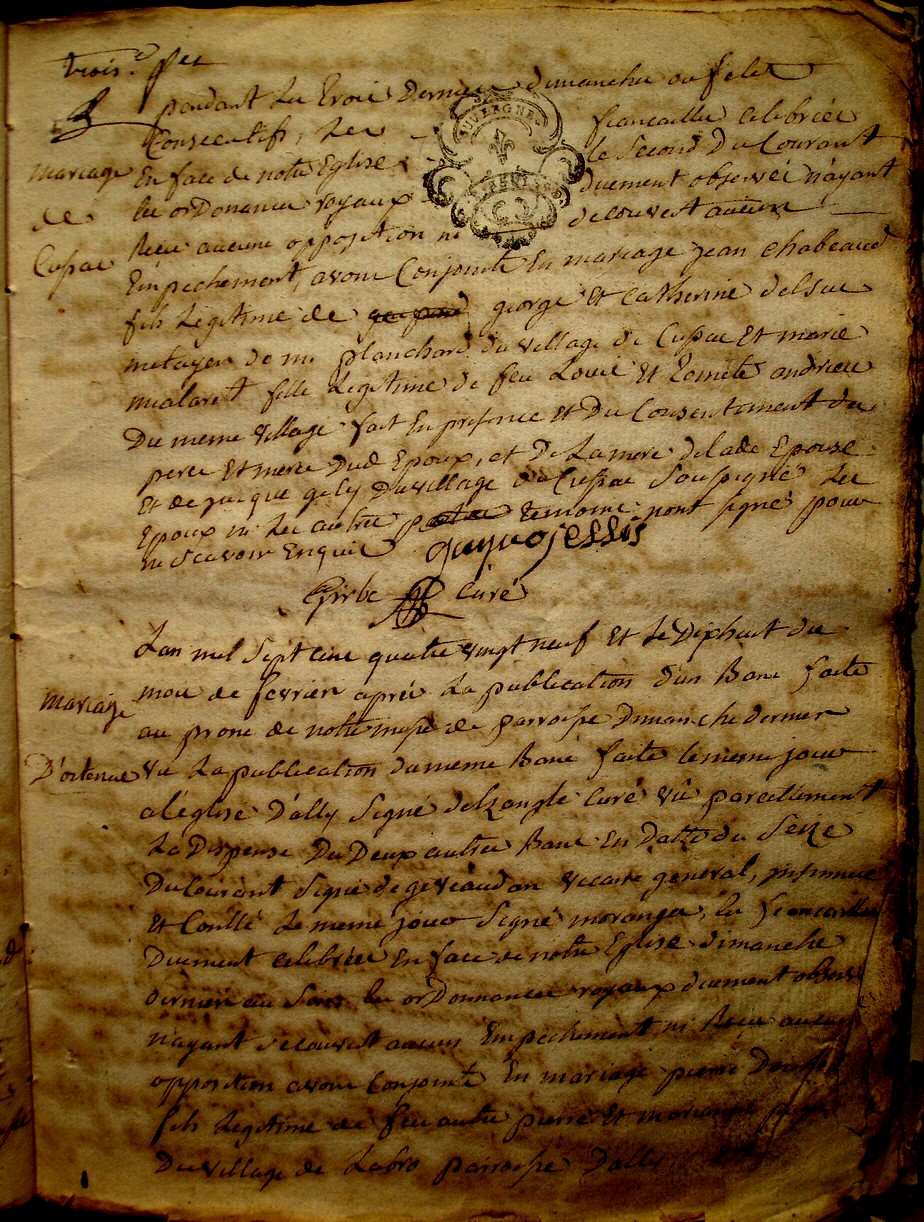 trois.e
pendant les trois derniers dimanches ou fetes
Consecutifs, Les fiancailles celebrées
mariage En face de notre Eglise le second du Courant
de les orDonances royaux duement observé n'ayant
Cussac Reçu aucune opposition ni decouvert aucun
Empechement, avons Conjoints En mariage jean chabeaud
fils Legitime de george Et catherine delsuc
metayer de mr planchard du village de Cussac Et marie
malaret fille Legitime de feu Louis Et Toinete andrieu
Du meme village fait En presence Et Du Consentement du
pere Et mere Dud Epoux, et De La mere de lade Epouse
Et de jacque gely Du village de Cussac Soussigné Les
Epoux ni Les autres temoins nont signé pour
ne Scavoir Enquis
Girbe Curé
Lan mil Sept cens quatre vingt neuf Et Le Diphuit du
mariage mois de fevrier aprés La publication d'un Banc faite
au prone de notre messe de parroisse Dimanche dernier
D'ostenac Vu La publication du meme Banc faite le meme jour
a l'église D'ally Signé delzangle Curé Vu pareillement
La Dispense Du Deux autres Banc En Datte du Seize
Du Courant Signé de geveaudan vicaire general, insinuée
Et Conllé Le meme jour Signé moranges, les fiancailles
Duement celebrées En face de notre Eglise dimanche
dernier au Soir les orDonnances royaux duement observé
n'ayant decouvert aucun Empechement ni Reçu aucune
opposition avons Conjoints En mariage pierre
fils Legitime de feu autre pierre Et marianne
Du village de Labro parroisse D'ally
AUVERGNE